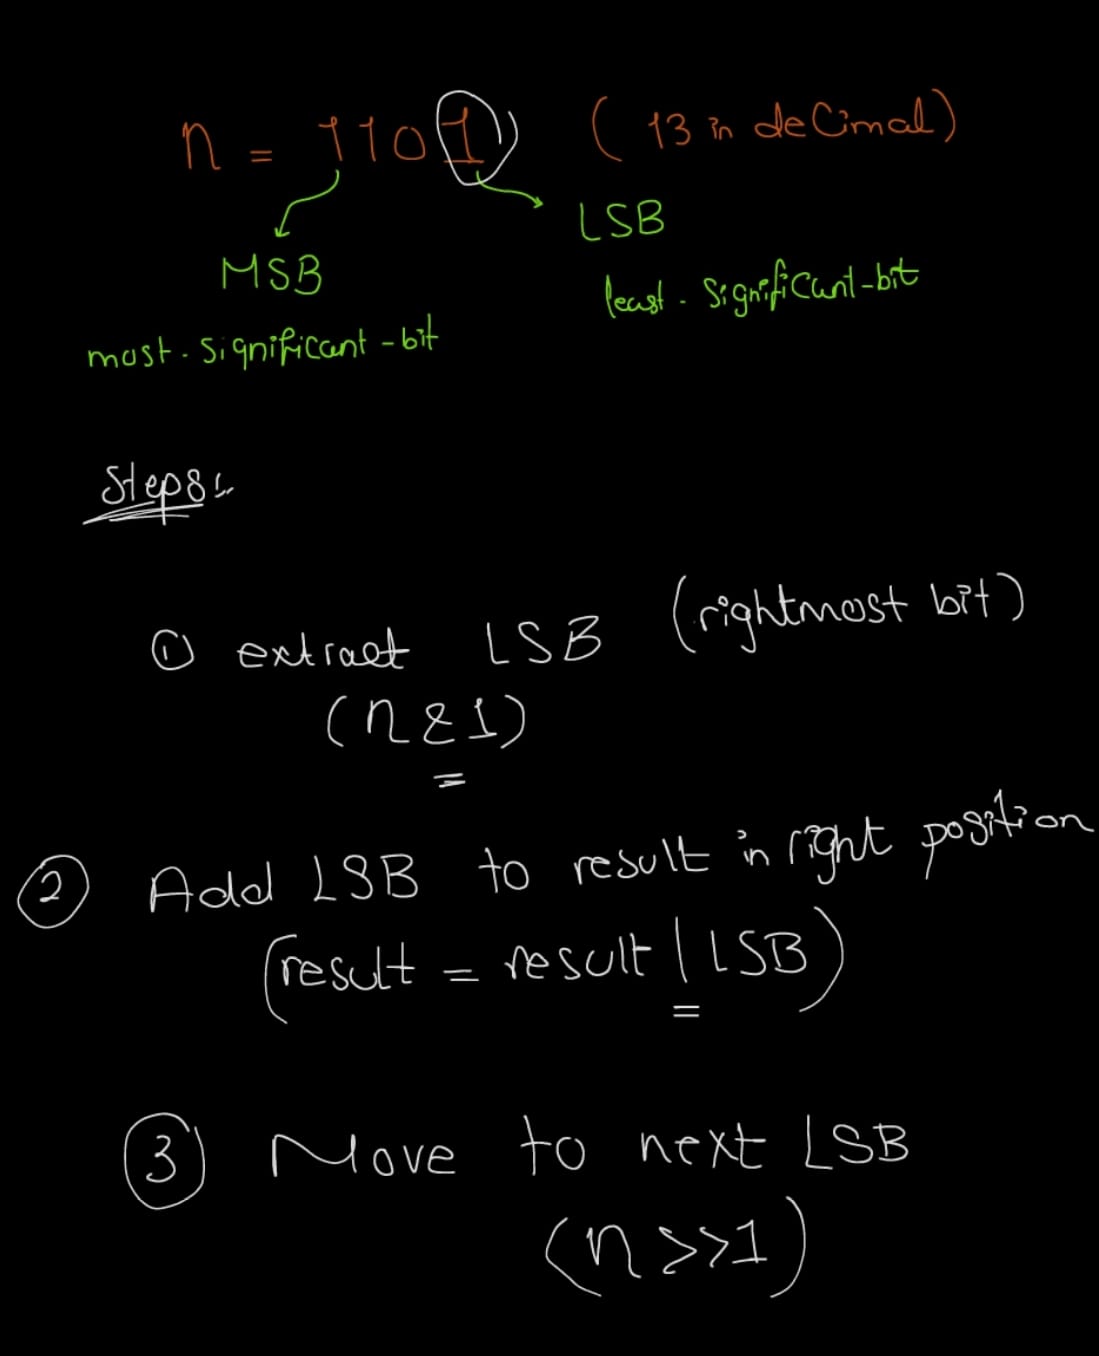 n = 1101 (13 in decimal)
MSB
LSB
most-significant-bit
least-significant-bit
Steps:
① extract LSB (rightmost bit)
(n & 1)
② Add LSB to result in right position
(result = result | LSB)
③ Move to next LSB
(n >> 1)